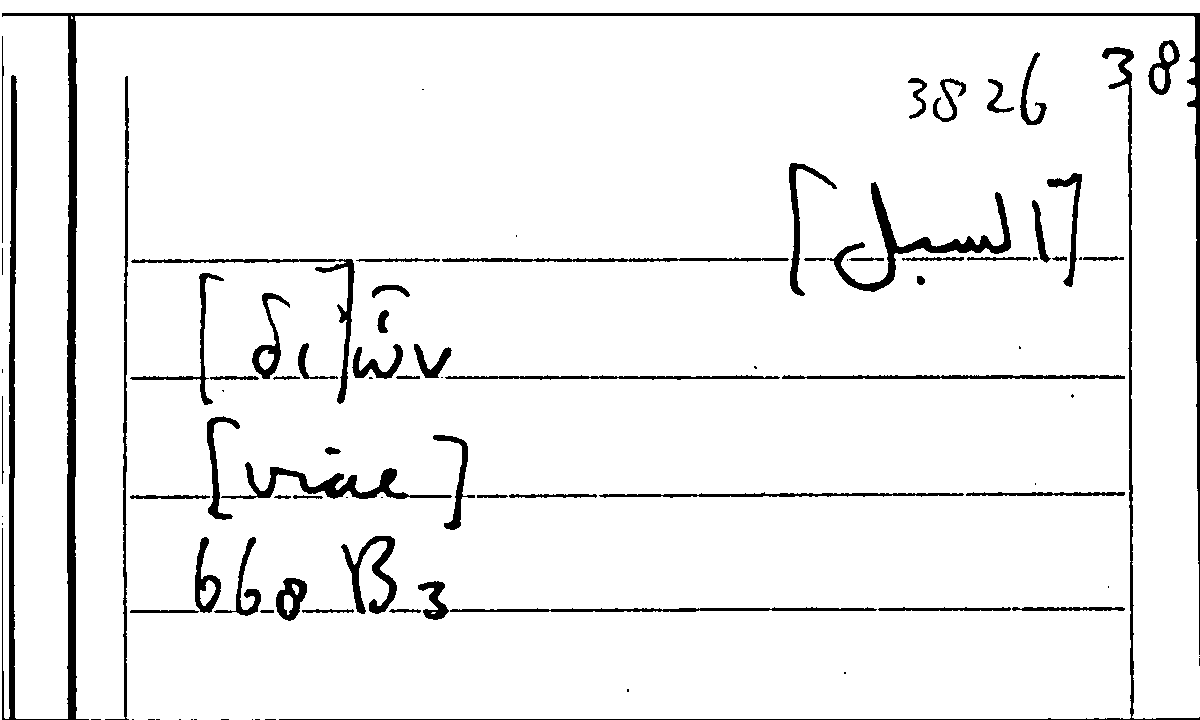 3826
[السبل]
[δι] ὧν
[viae]
668 B 3